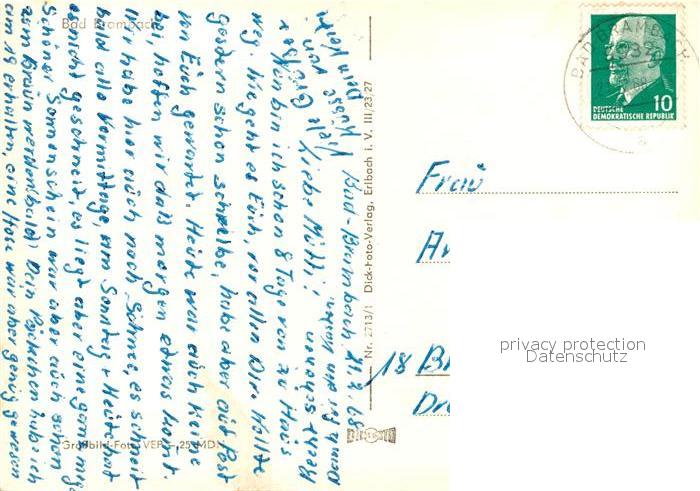 Bad Brambach
Bad-Brambach 21.2.68
Liebe Mutti!
Nun bin ich schon 8 Tage von zu Haus
weg. Wie geht es Euch, vor allen Dir. Wollte
gestern schon schreiben, habe aber auf Post
von Euch gewartet. Heute war auch keine
bei, hoffen wir daß morgen etwas kommt.
Wir haben hier auch noch Schnee, es schneit
bald alle Vormittage, am Sonntag + Heute hat
es nicht geschneit, es liegt aber eine ganz menge
Schöner Sonnenschein war aber auch schon
zum Braun werden (beide) Dein Päckchen habe ich
am 19 erhalten, eine Hose war aber genug gewesen
Viele Grüße
Großbild-Foto VEB 25 MDN
Nr. 2713/1 Dick-Foto-Verlag, Erlbach i. V. III/23/27
BAD BRAMBACH
9932
a
DEUTSCHE
DEMOKRATISCHE REPUBLIK
10
Frau
18
privacy protection
Datenschutz